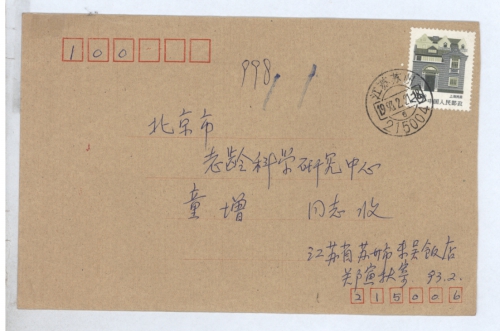 100
998.1.1
北京市
老龄科学研究中心
童增 同志收
江苏省苏州市东吴饭店
郑宣秋寄 93.2.
215006
上海民居
中国人民邮政
江苏 苏州
1993.2.
215004